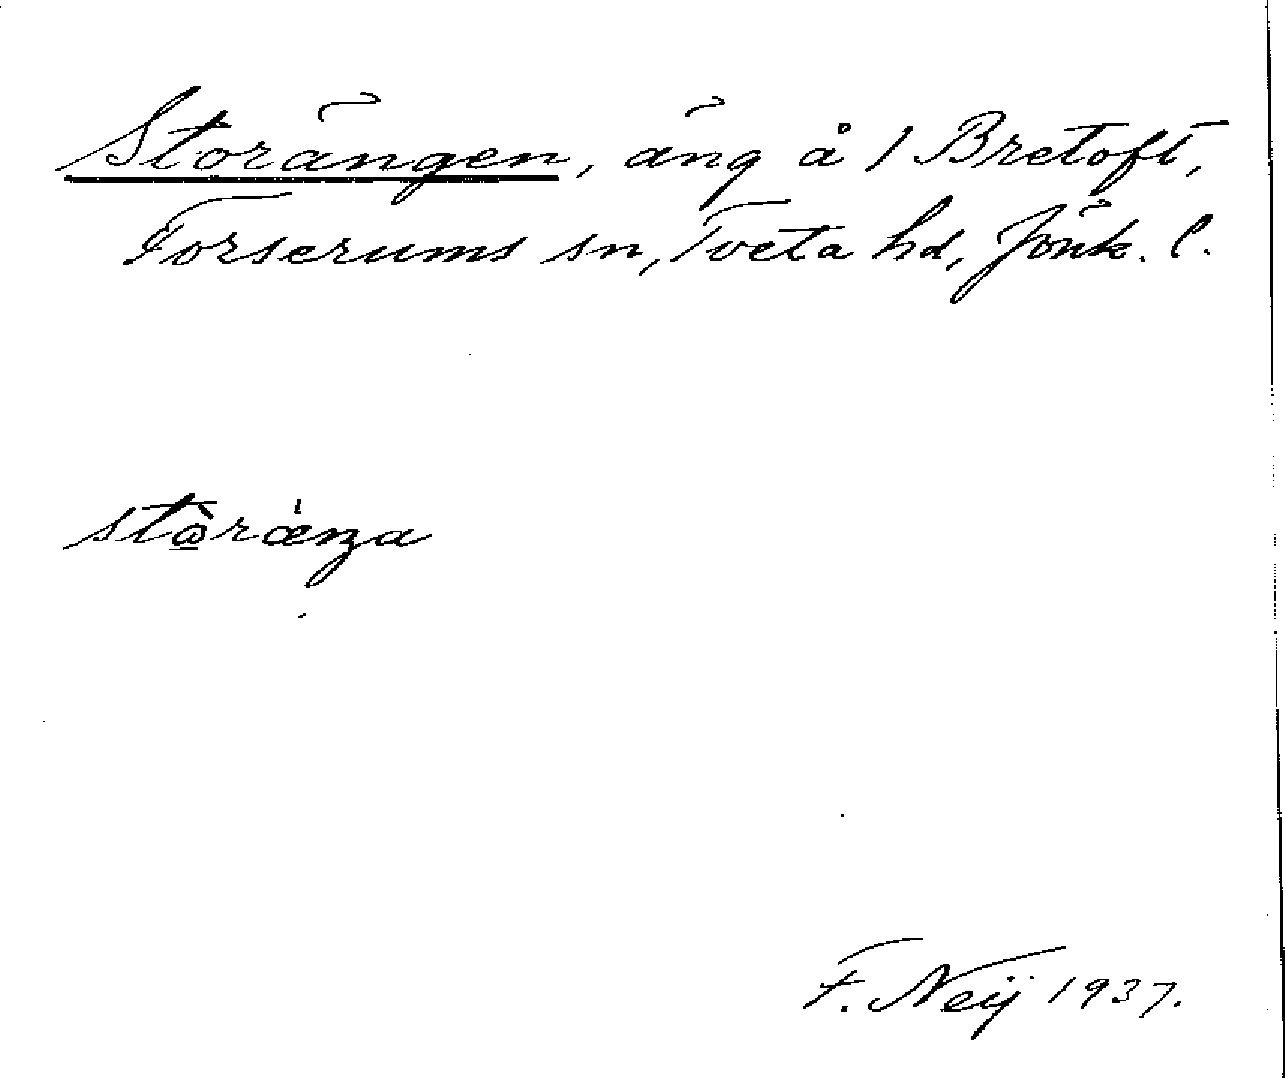 Storängen, äng å 1 Bretoft,
Forserums sn, Tveta hd, Jönk. l.
stòræŋa
F. Neij 1937.